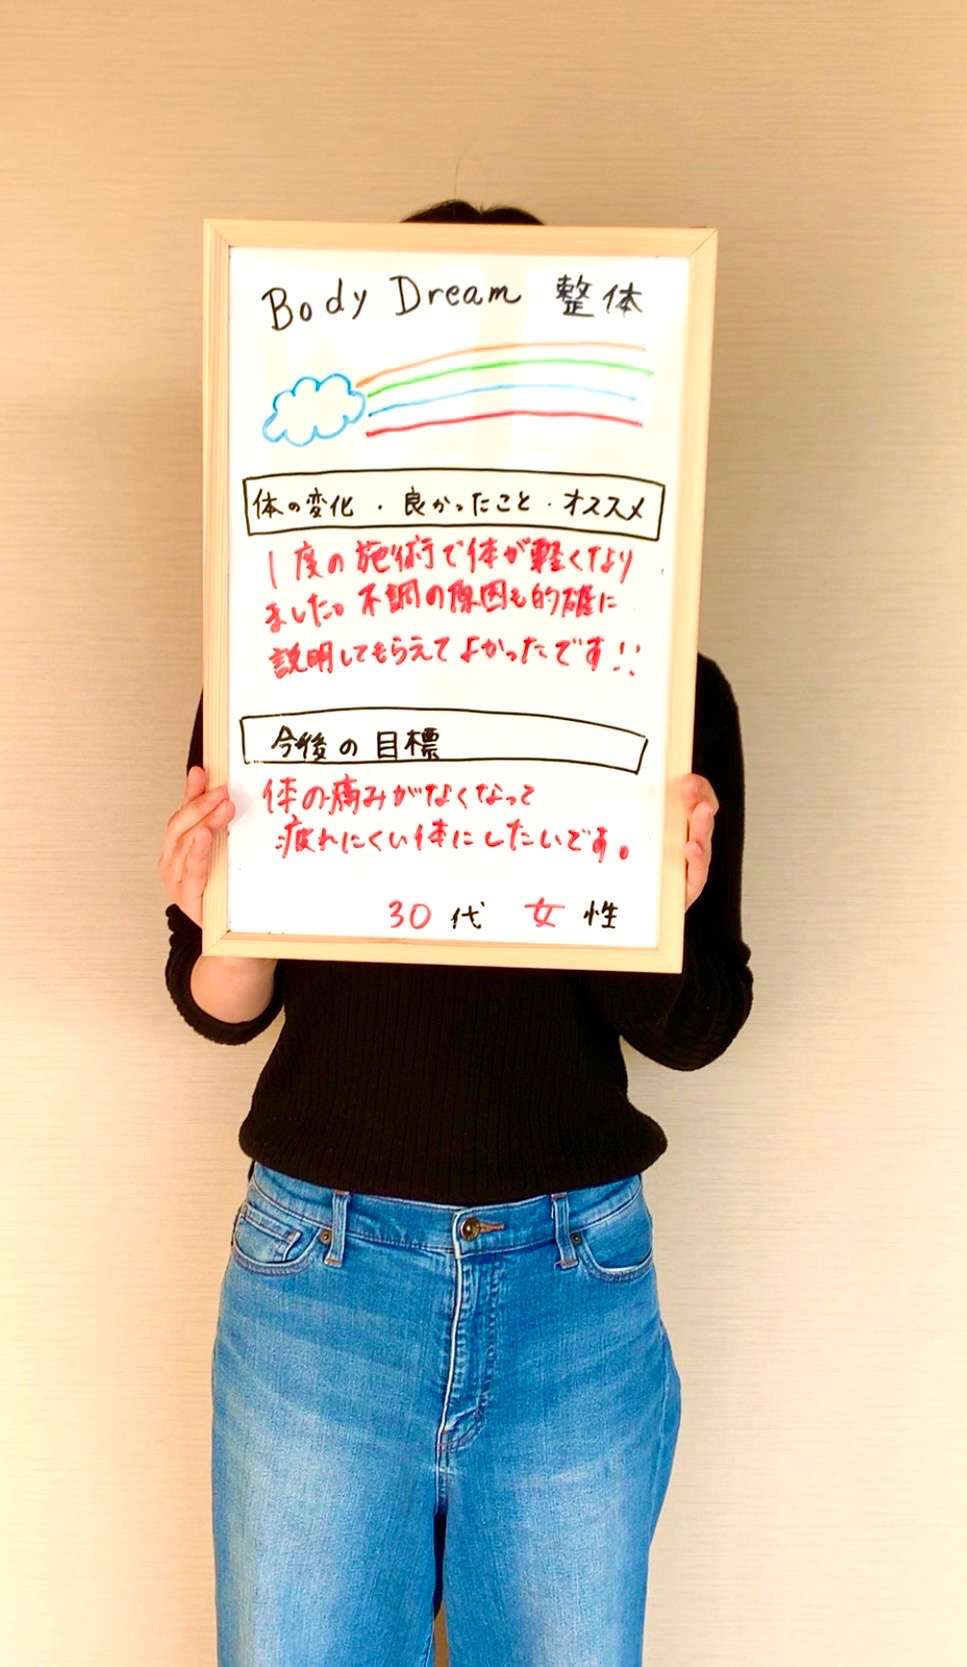 Body Dream 整体
体の変化・良かったこと・オススメ
1度の施術で体が軽くなり
ました。不調の原因も的確に
説明してもらえてよかったです!!
今後の目標
体の痛みがなくなって
疲れにくい体にしたいです。
30代 女性